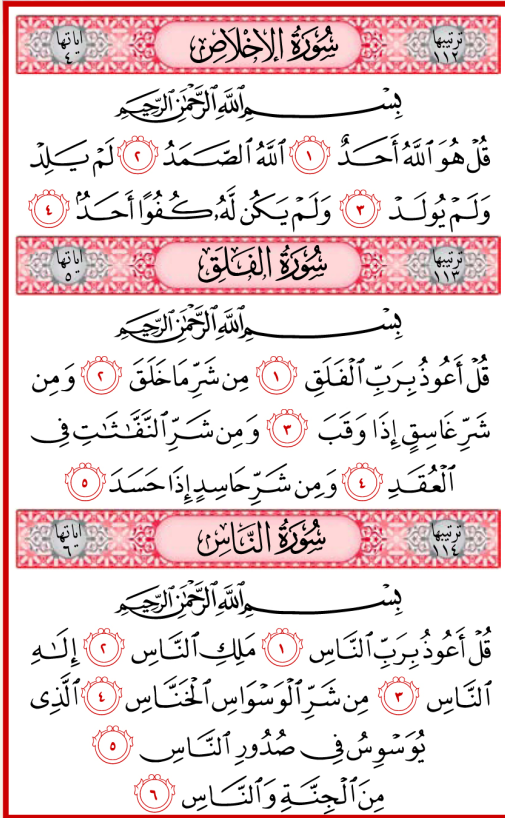 ترتيبها ١١٢ سُورَةُ الإِخْلَاصِ اياتها ٤
بِسْمِ ٱللَّهِ ٱلرَّحْمَٰنِ ٱلرَّحِيمِ
قُلْ هُوَ ٱللَّهُ أَحَدٌ ١ ٱللَّهُ ٱلصَّمَدُ ٢ لَمْ يَلِدْ
وَلَمْ يُولَدْ ٣ وَلَمْ يَكُن لَّهُۥ كُفُوًا أَحَدٌۢ ٤
ترتيبها ١١٣ سُورَةُ الفَلَقِ اياتها ٥
بِسْمِ ٱللَّهِ ٱلرَّحْمَٰنِ ٱلرَّحِيمِ
قُلْ أَعُوذُ بِرَبِّ ٱلْفَلَقِ ١ مِن شَرِّ مَا خَلَقَ ٢ وَمِن
شَرِّ غَاسِقٍ إِذَا وَقَبَ ٣ وَمِن شَرِّ ٱلنَّفَّٰثَٰتِ فِى
ٱلْعُقَدِ ٤ وَمِن شَرِّ حَاسِدٍ إِذَا حَسَدَ ٥
ترتيبها ١١٤ سُورَةُ النَّاسِ اياتها ٦
بِسْمِ ٱللَّهِ ٱلرَّحْمَٰنِ ٱلرَّحِيمِ
قُلْ أَعُوذُ بِرَبِّ ٱلنَّاسِ ١ مَلِكِ ٱلنَّاسِ ٢ إِلَٰهِ
ٱلنَّاسِ ٣ مِن شَرِّ ٱلْوَسْوَاسِ ٱلْخَنَّاسِ ٤ ٱلَّذِى
يُوَسْوِسُ فِى صُدُورِ ٱلنَّاسِ ٥
مِنَ ٱلْجِنَّةِ وَٱلنَّاسِ ٦